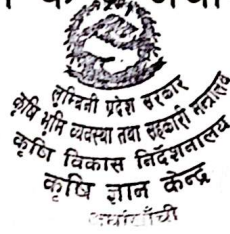 लुम्बिनी प्रदेश सरकार
कृषि भूमि व्यवस्था तथा सहकारी मन्त्रालय
कृषि विकास निर्देशनालय
कृषि ज्ञान केन्द्र
अर्घाखाँची